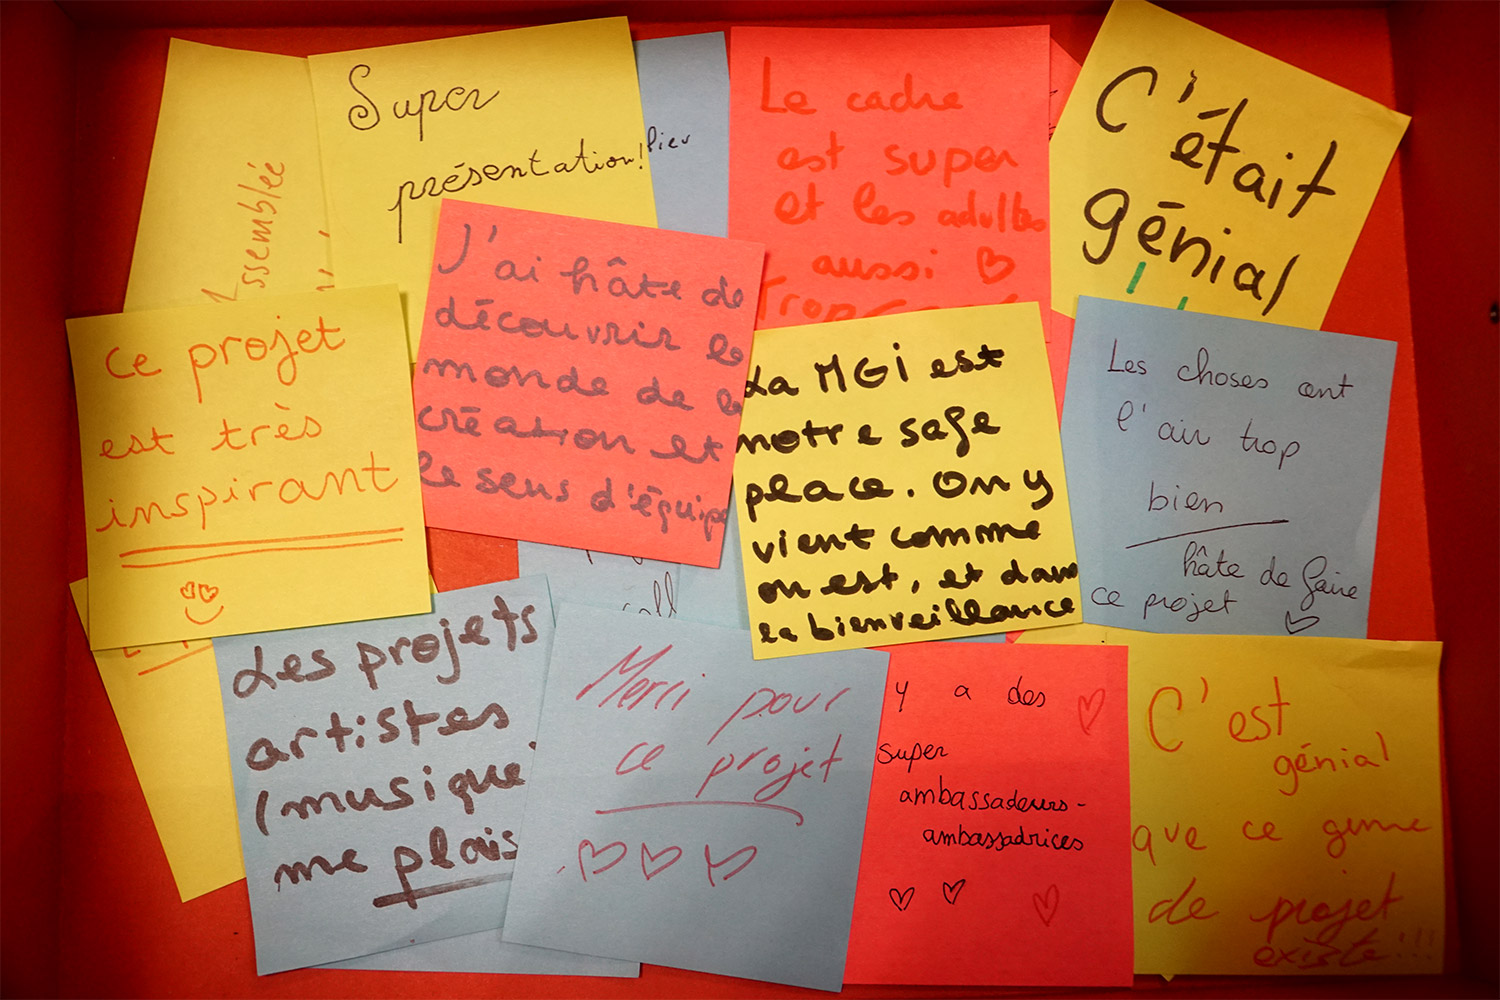 Assemblée
Super
présentation!
lier
Le cadre
est super
et les adultes
aussi
Trop
C'était
génial
Ce projet
est très
inspirant
J'ai hâte de
découvrir le
monde de la
création et
le sens d'équipe
La MGI est
notre safe
place. On y
vient comme
on est, et dans
la bienveillance
Les choses ont
l'air trop
bien
hâte de faire
ce projet
coll
Les projets
artistes
(musique
me plais
Merci pour
ce projet
y a des
super
ambassadeurs-
ambassadrices
C'est
génial
que ce genre
de projet
existe!!!